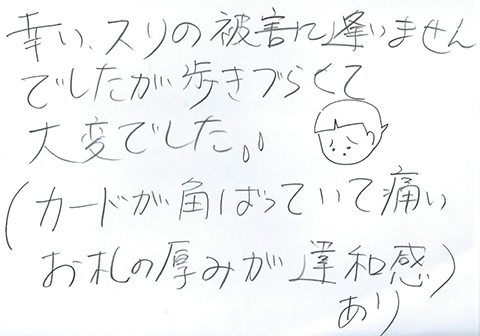 幸い、スリの被害に逢いません
でしたが歩きづらくて
大変でした。。
(カードが角ばっていて痛い
お札の厚みが違和感)
あり